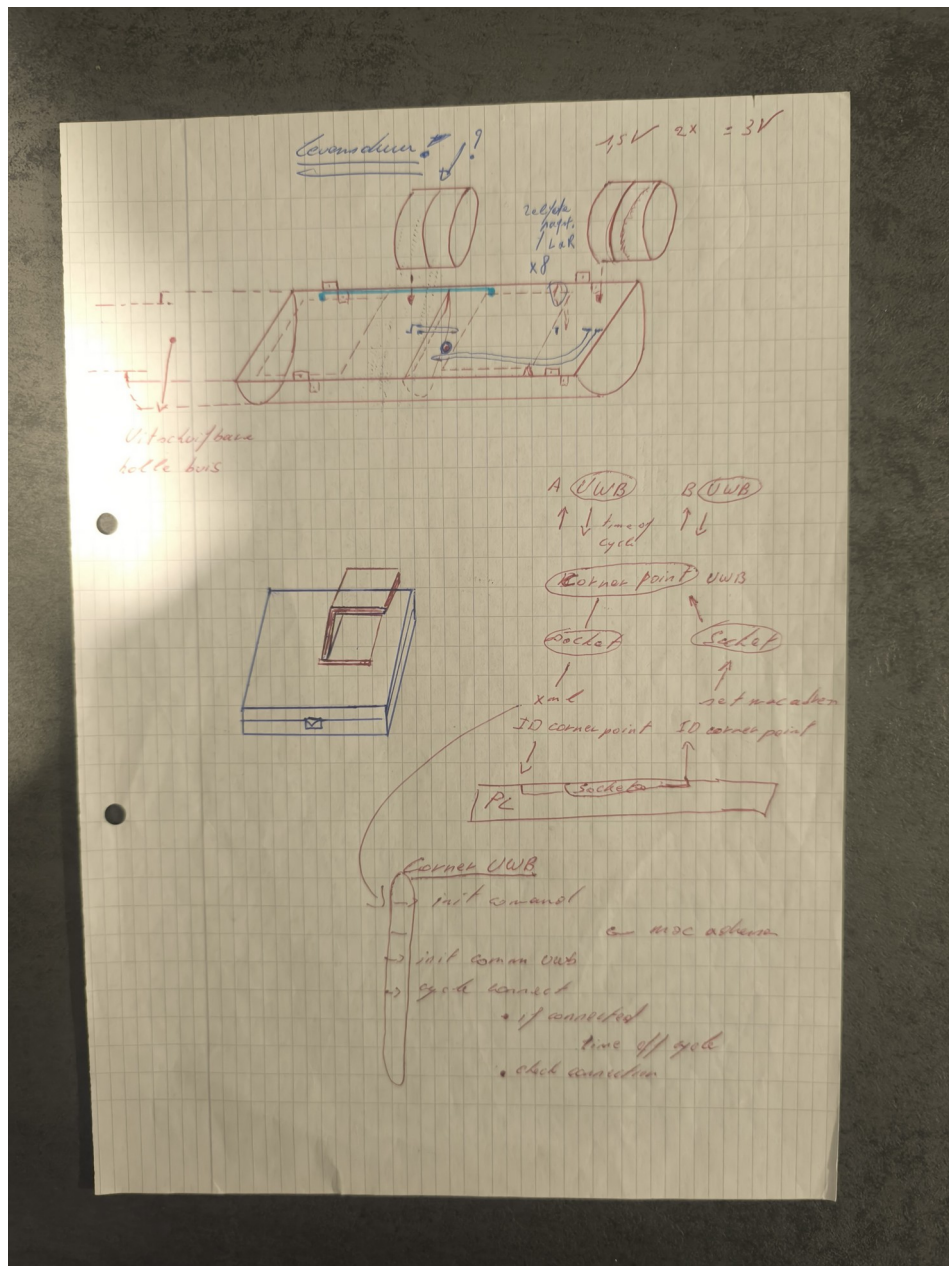 ?
1,5V 2x = 3V
x8
Uitschuifbare
holle buis
A UWB B UWB
time of
cycle
Corner point UWB
Socket Socket
xml set mac adres
ID corner point ID corner point
PC Sockets
Corner UWB
init comand
mac adressen
init comm UWB
cycle connect
if connected
time off cycle
check connection